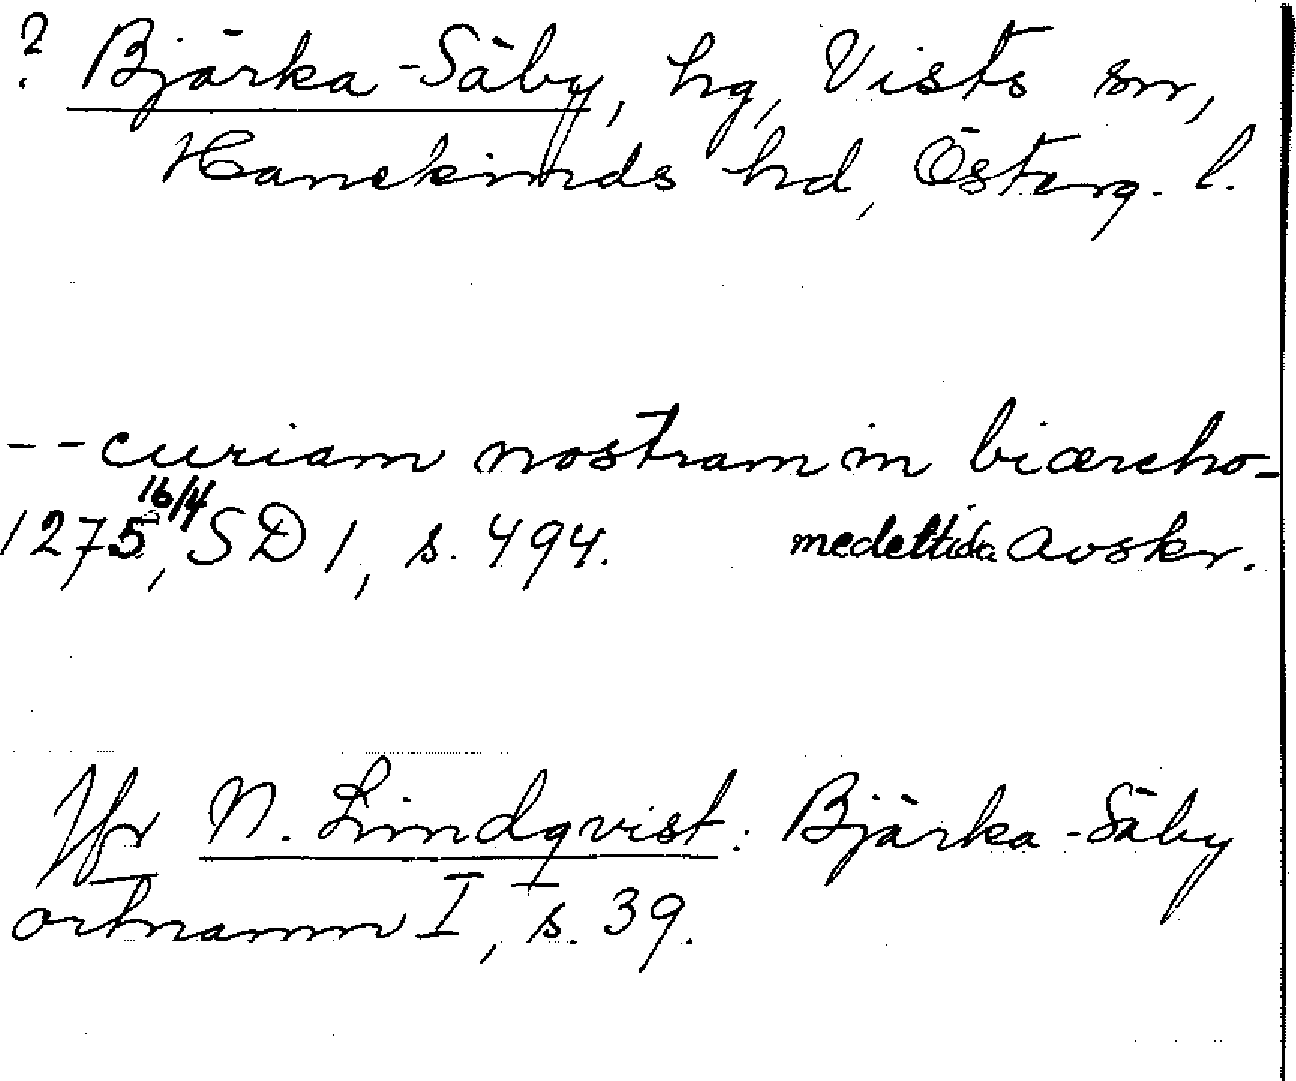 ? Bjärka-Säby, hg, Vists sn,
Hanekinds hd, Österg. l.
--curiam nostram in biærcho-
1275 16/4, SD 1, s. 494. medeltida avskr.
Jfr N. Lindqvist: Bjärka-Säby
ortnamn I, s. 39.